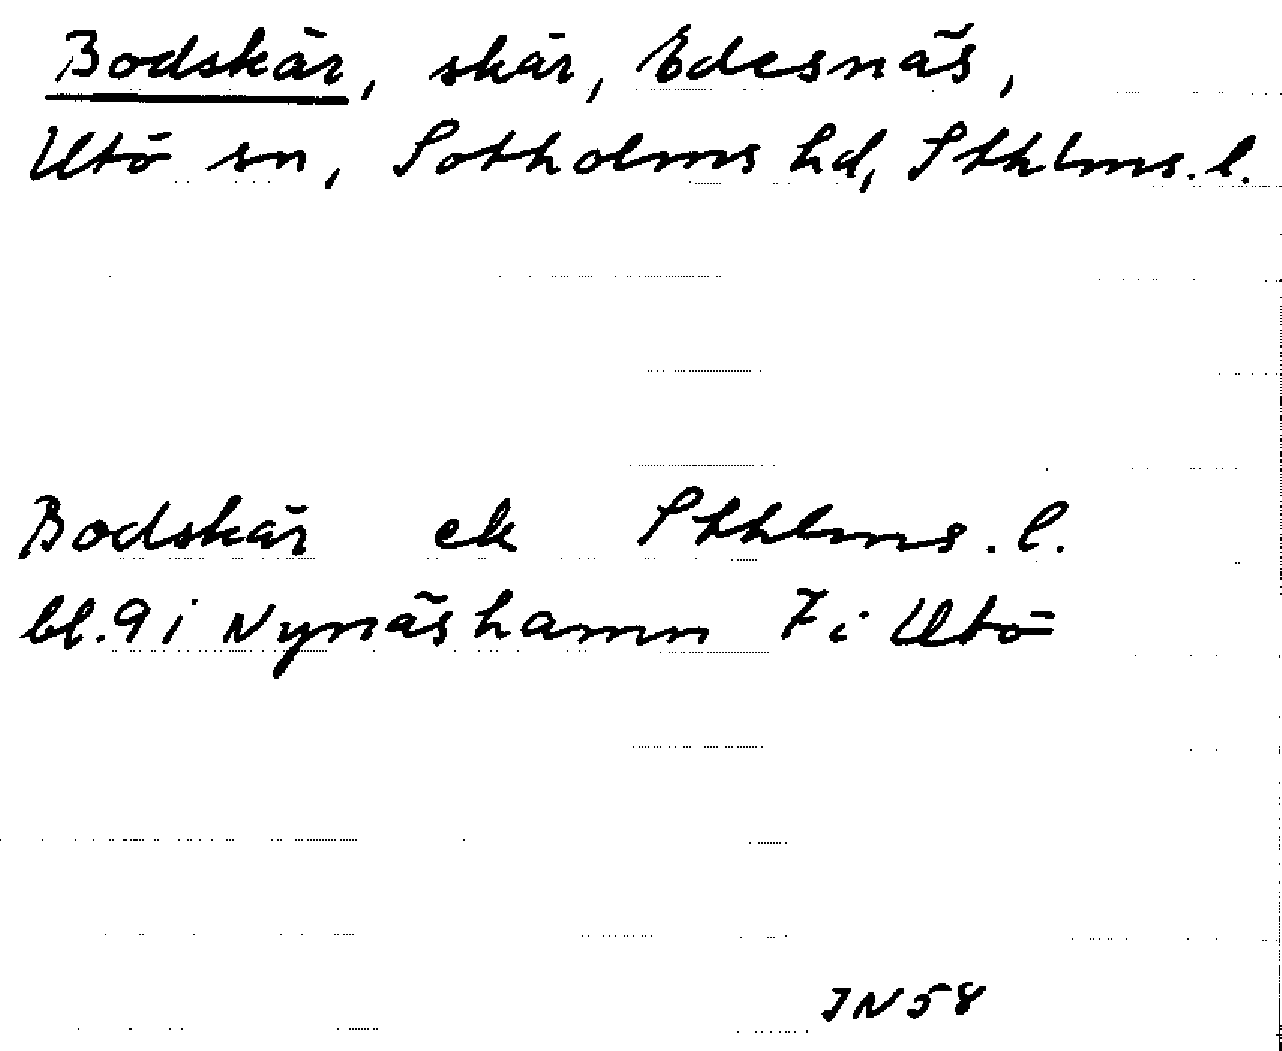 Bodskär, skär, Edesnäs,
Utö sn, Sotholms hd, Sthlms. l.
Bodskär ek Sthlms. l.
bl. 9 i Nynäshamn 7 i Utö
JN 58